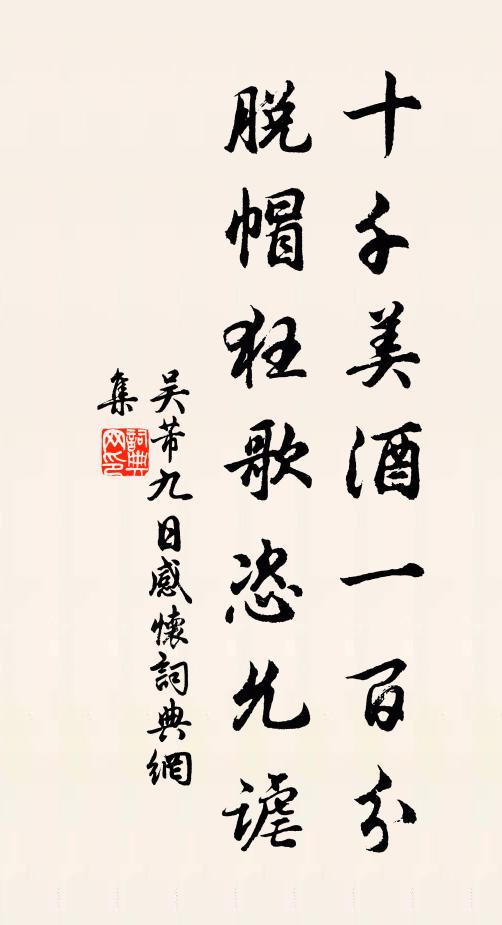 十千美酒一百分
脫帽狂歌恣允謔
吳芾九日感懷詞典網
集
詞典網印